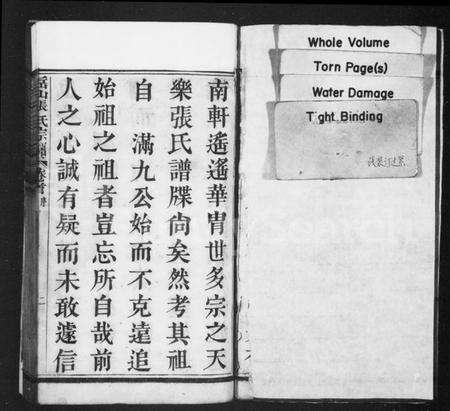 南軒遙遙華胄世多宗之天
樂張氏譜牒尙矣然考其祖
自 滿九公始而不克遠追
始祖之祖者豈忘所自哉前
人之心誠有疑而未敢遽信
張氏宗譜
卷首
二
Whole Volume
Torn Page(s)
Water Damage
Tight Binding